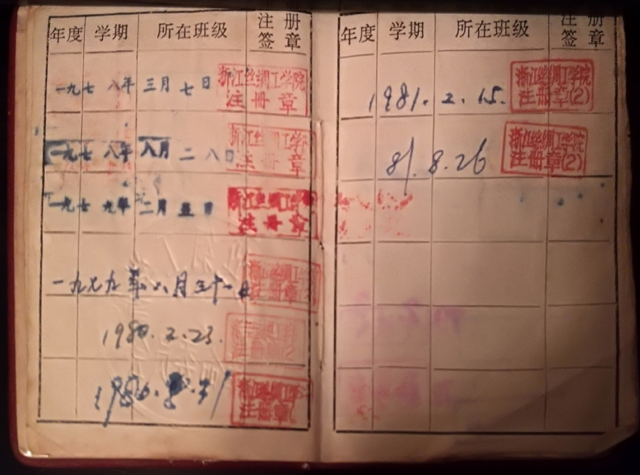 年度 学期 所在班级 注册签章
一九七八年三月七日 浙江丝绸工学院
注册章
一九七八年八月二八日 浙江丝绸工学院
注册章
一九七九年二月五日 浙江丝绸工学院
注册章
一九七九年八月三十一日 浙江丝绸工学院
注册章
1980.2.23.
1980.8.31 浙江丝绸工学院
注册章
年度 学期 所在班级 注册签章
1981.2.15. 浙江丝绸工学院
注册章(2)
81.8.26 浙江丝绸工学院
注册章(2)